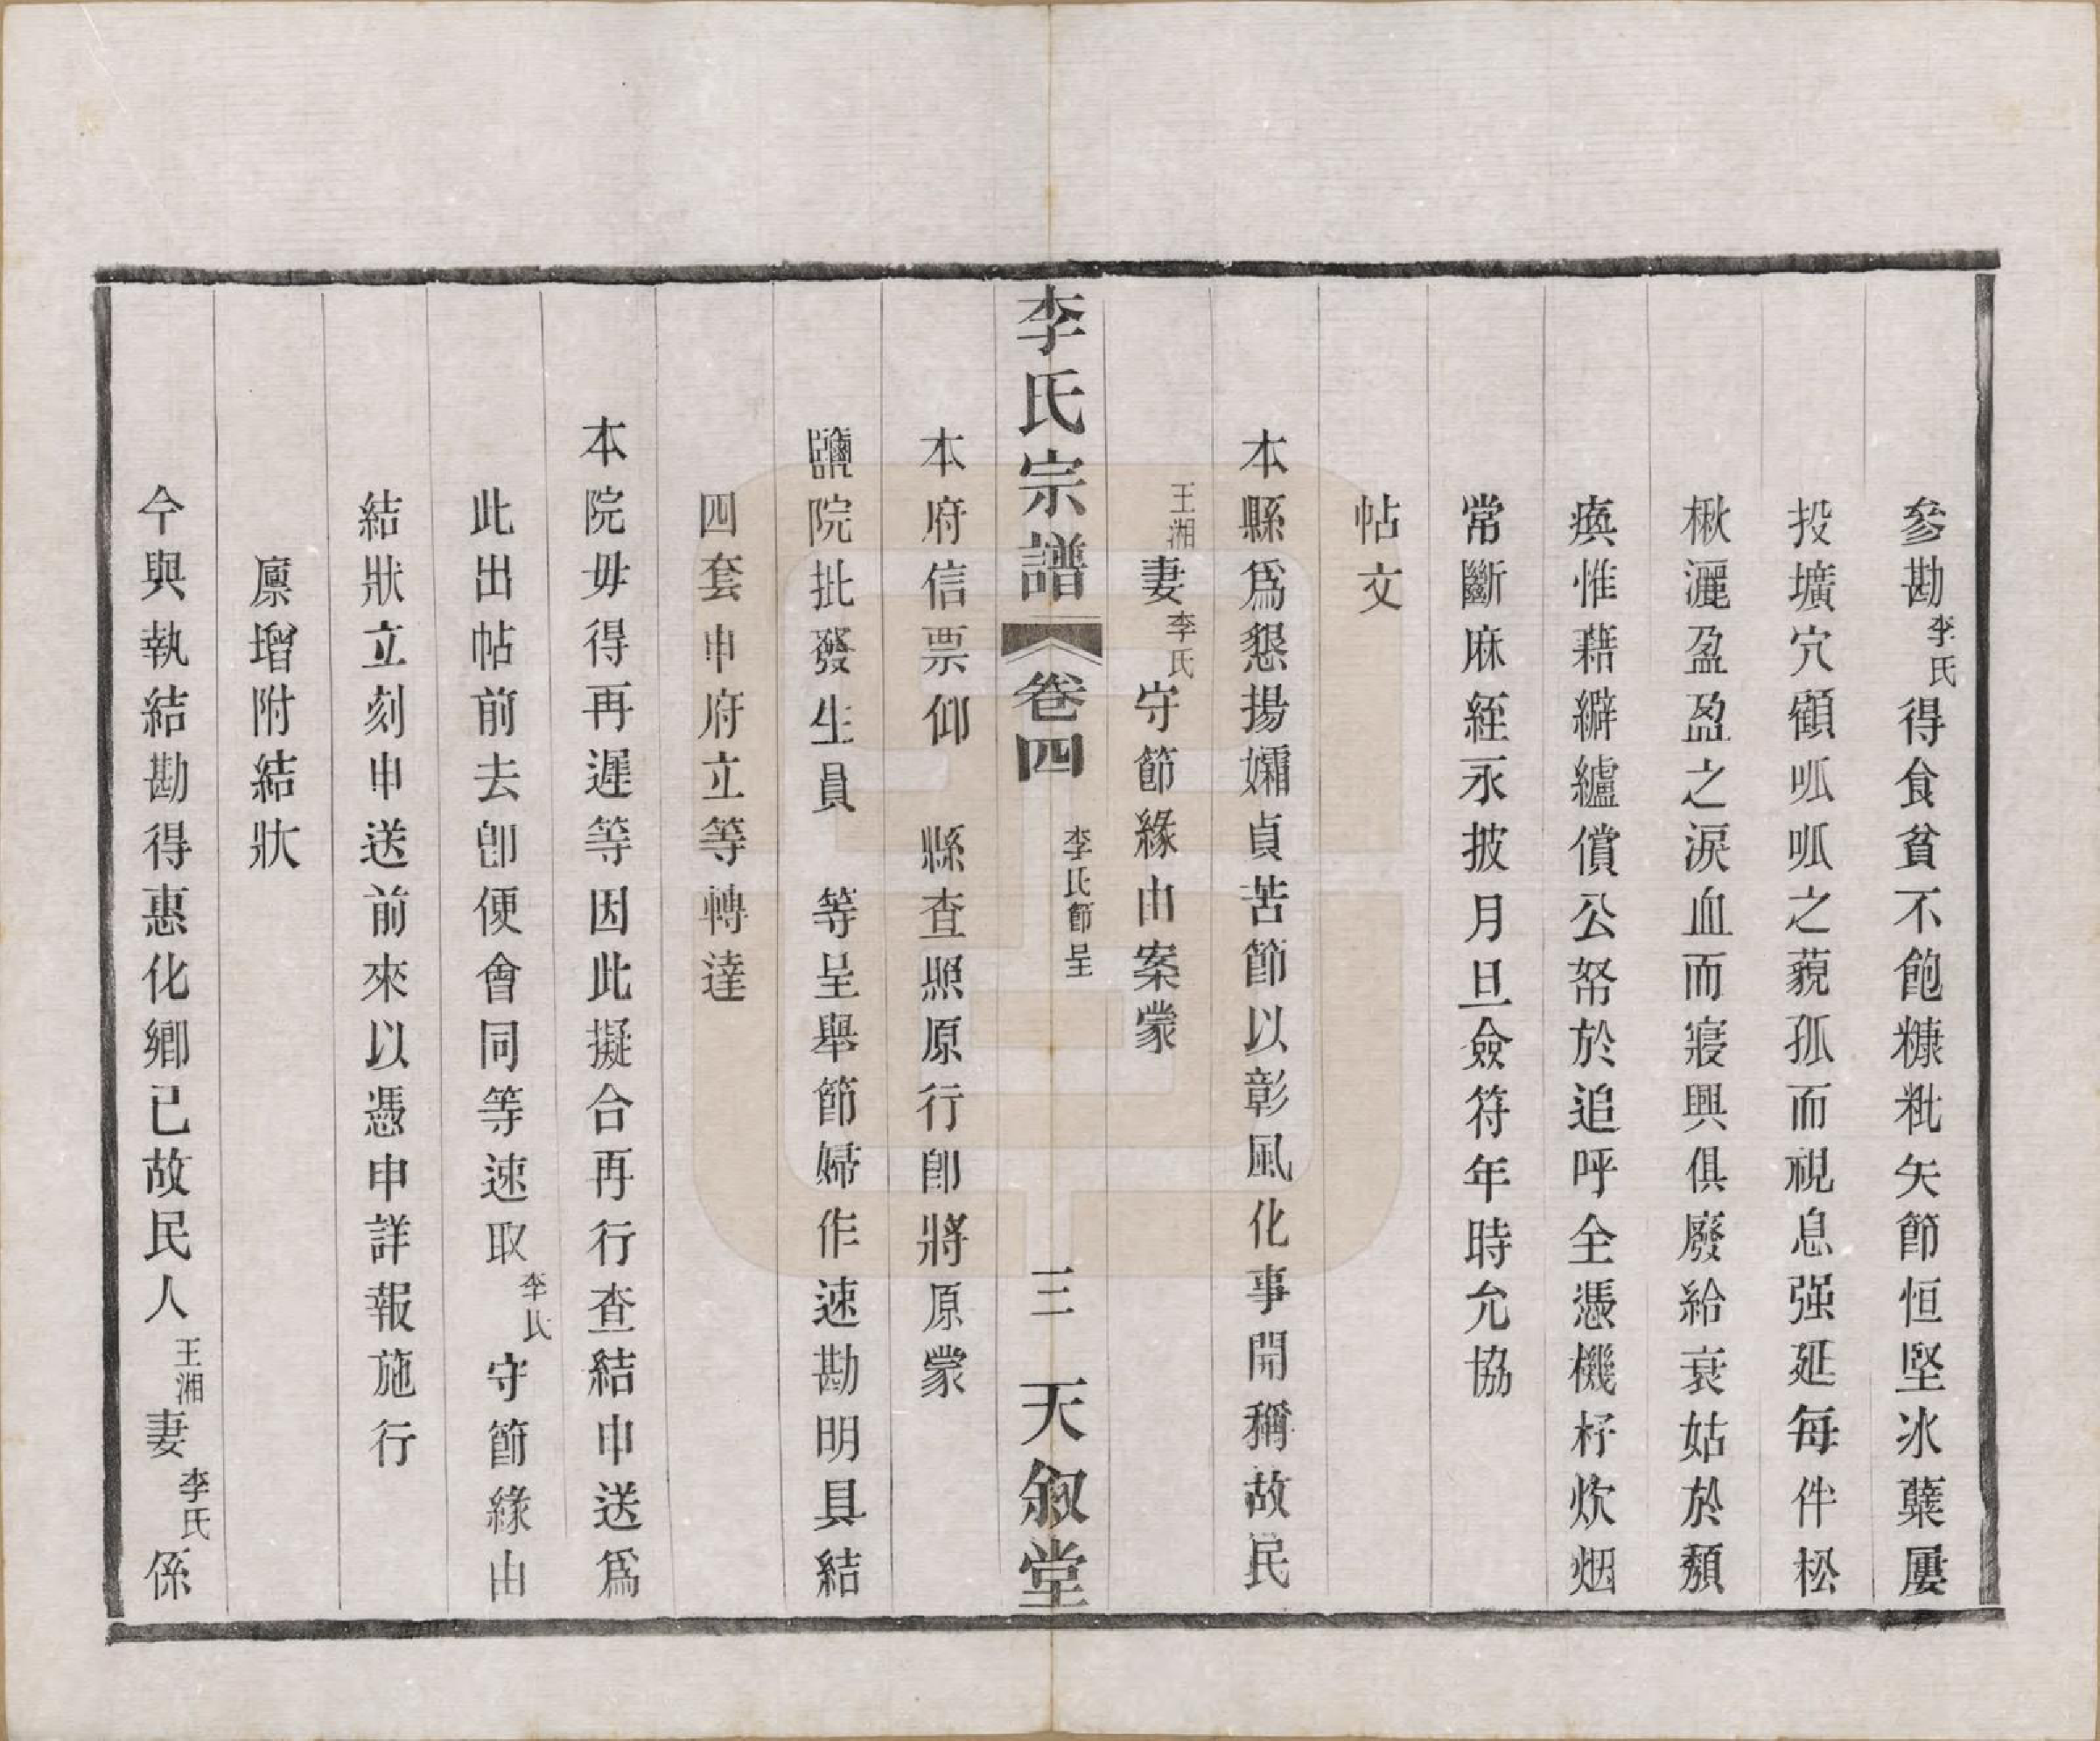 參勘李氏得食貧不飽糠粃矢節恒堅氷蘖屢
投壙穴顧呱呱之藐孤而視息强延每伴松
楸灑盈盈之淚血而寢興俱廢給衰姑於頽
瘓惟藉緶纑償公帑於追呼全憑機杼炊烟
常斷麻絰永披月旦僉符年時允協
帖文
本縣爲懇揚孀貞苦節以彰風化事開稱故民
王湘妻李氏守節緣由案蒙
李氏宗譜 卷四 李氏節呈 三 天叙堂
本府信票仰 縣查照原行卽將原蒙
鹽院批發生員 等呈舉節婦作速勘明具結
四套申府立等轉達
本院毋得再遲等因此擬合再行查結申送爲
此出帖前去卽便會同等速取李氏守節緣由
結狀立刻申送前來以憑申詳報施行
廩增附結狀
今與執結勘得惠化鄉已故民人王湘妻李氏係